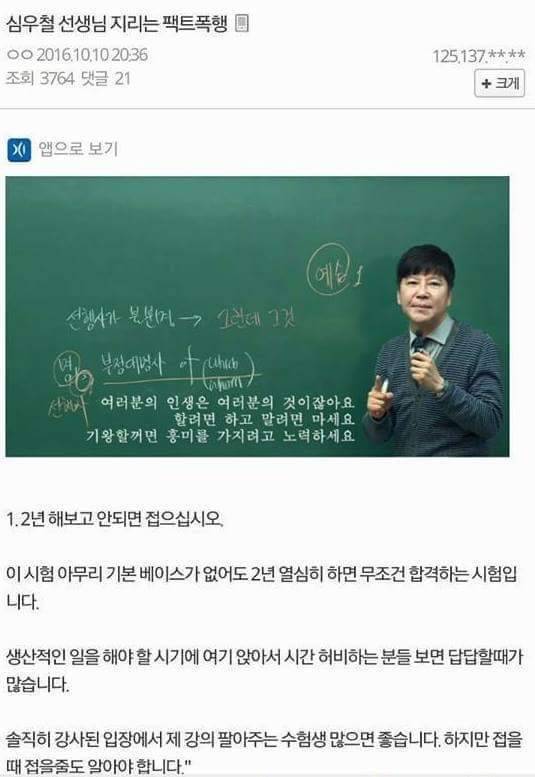 심우철 선생님 지리는 팩트폭행
ㅇㅇ 2016.10.10 20:36
125.137.**.**
조회 3764 댓글 21
+ 크게
앱으로 보기
예습 1
선행사가 불분명 → 그런데 그것
명
부정대명사 of (which
whom)
선행사
여러분의 인생은 여러분의 것이잖아요
할려면 하고 말려면 마세요
기왕할꺼면 흥미를 가지려고 노력하세요
1. 2년 해보고 안되면 접으십시오.
이 시험 아무리 기본 베이스가 없어도 2년 열심히 하면 무조건 합격하는 시험입
니다.
생산적인 일을 해야 할 시기에 여기 앉아서 시간 허비하는 분들 보면 답답할때가
많습니다.
솔직히 강사된 입장에서 제 강의 팔아주는 수험생 많으면 좋습니다. 하지만 접을
때 접을줄도 알아야 합니다."